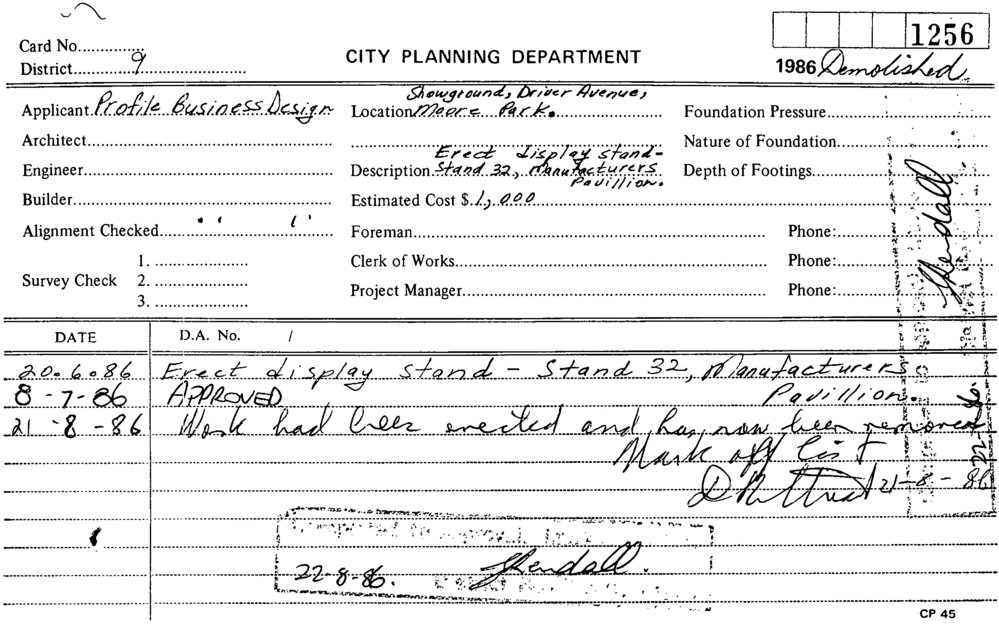 1256
Card No.
CITY PLANNING DEPARTMENT
1986 Demolished
District 9
Applicant Profile Business Design
Showground, Driver Avenue,
Location Moore Park.
Foundation Pressure
Architect
Nature of Foundation
Erect display stand-
Engineer
Description Stand 32, Manufacturers
Pavillion.
Depth of Footings
Builder
Estimated Cost $ 1,000
Alignment Checked
Foreman
Phone:
Survey Check
1.
2.
3.
Clerk of Works
Phone:
Project Manager
Phone:
DATE
D.A. No. /
20.6.86 Erect display stand - Stand 32, Manufacturers
Pavillion.
8-7-86 APPROVED
21-8-86 Work had been erected and has now been removed
Mark off list
21-8-86
22-8-86.
22-8-86.
CP 45